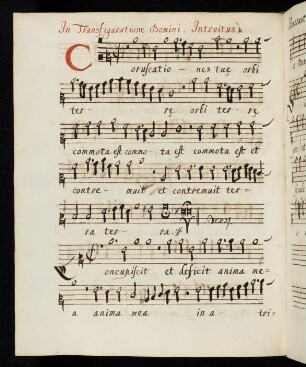 In Transfiguratione Domini. Introitus
Coruscatio - nes tuę orbi
ter - rę orbi ter - rę
commota est commo - ta est commota est et
contre - muit et contremuit ter -
ra ter - ra.
Concupiscit et deficit anima me -
a anima mea in a tri -